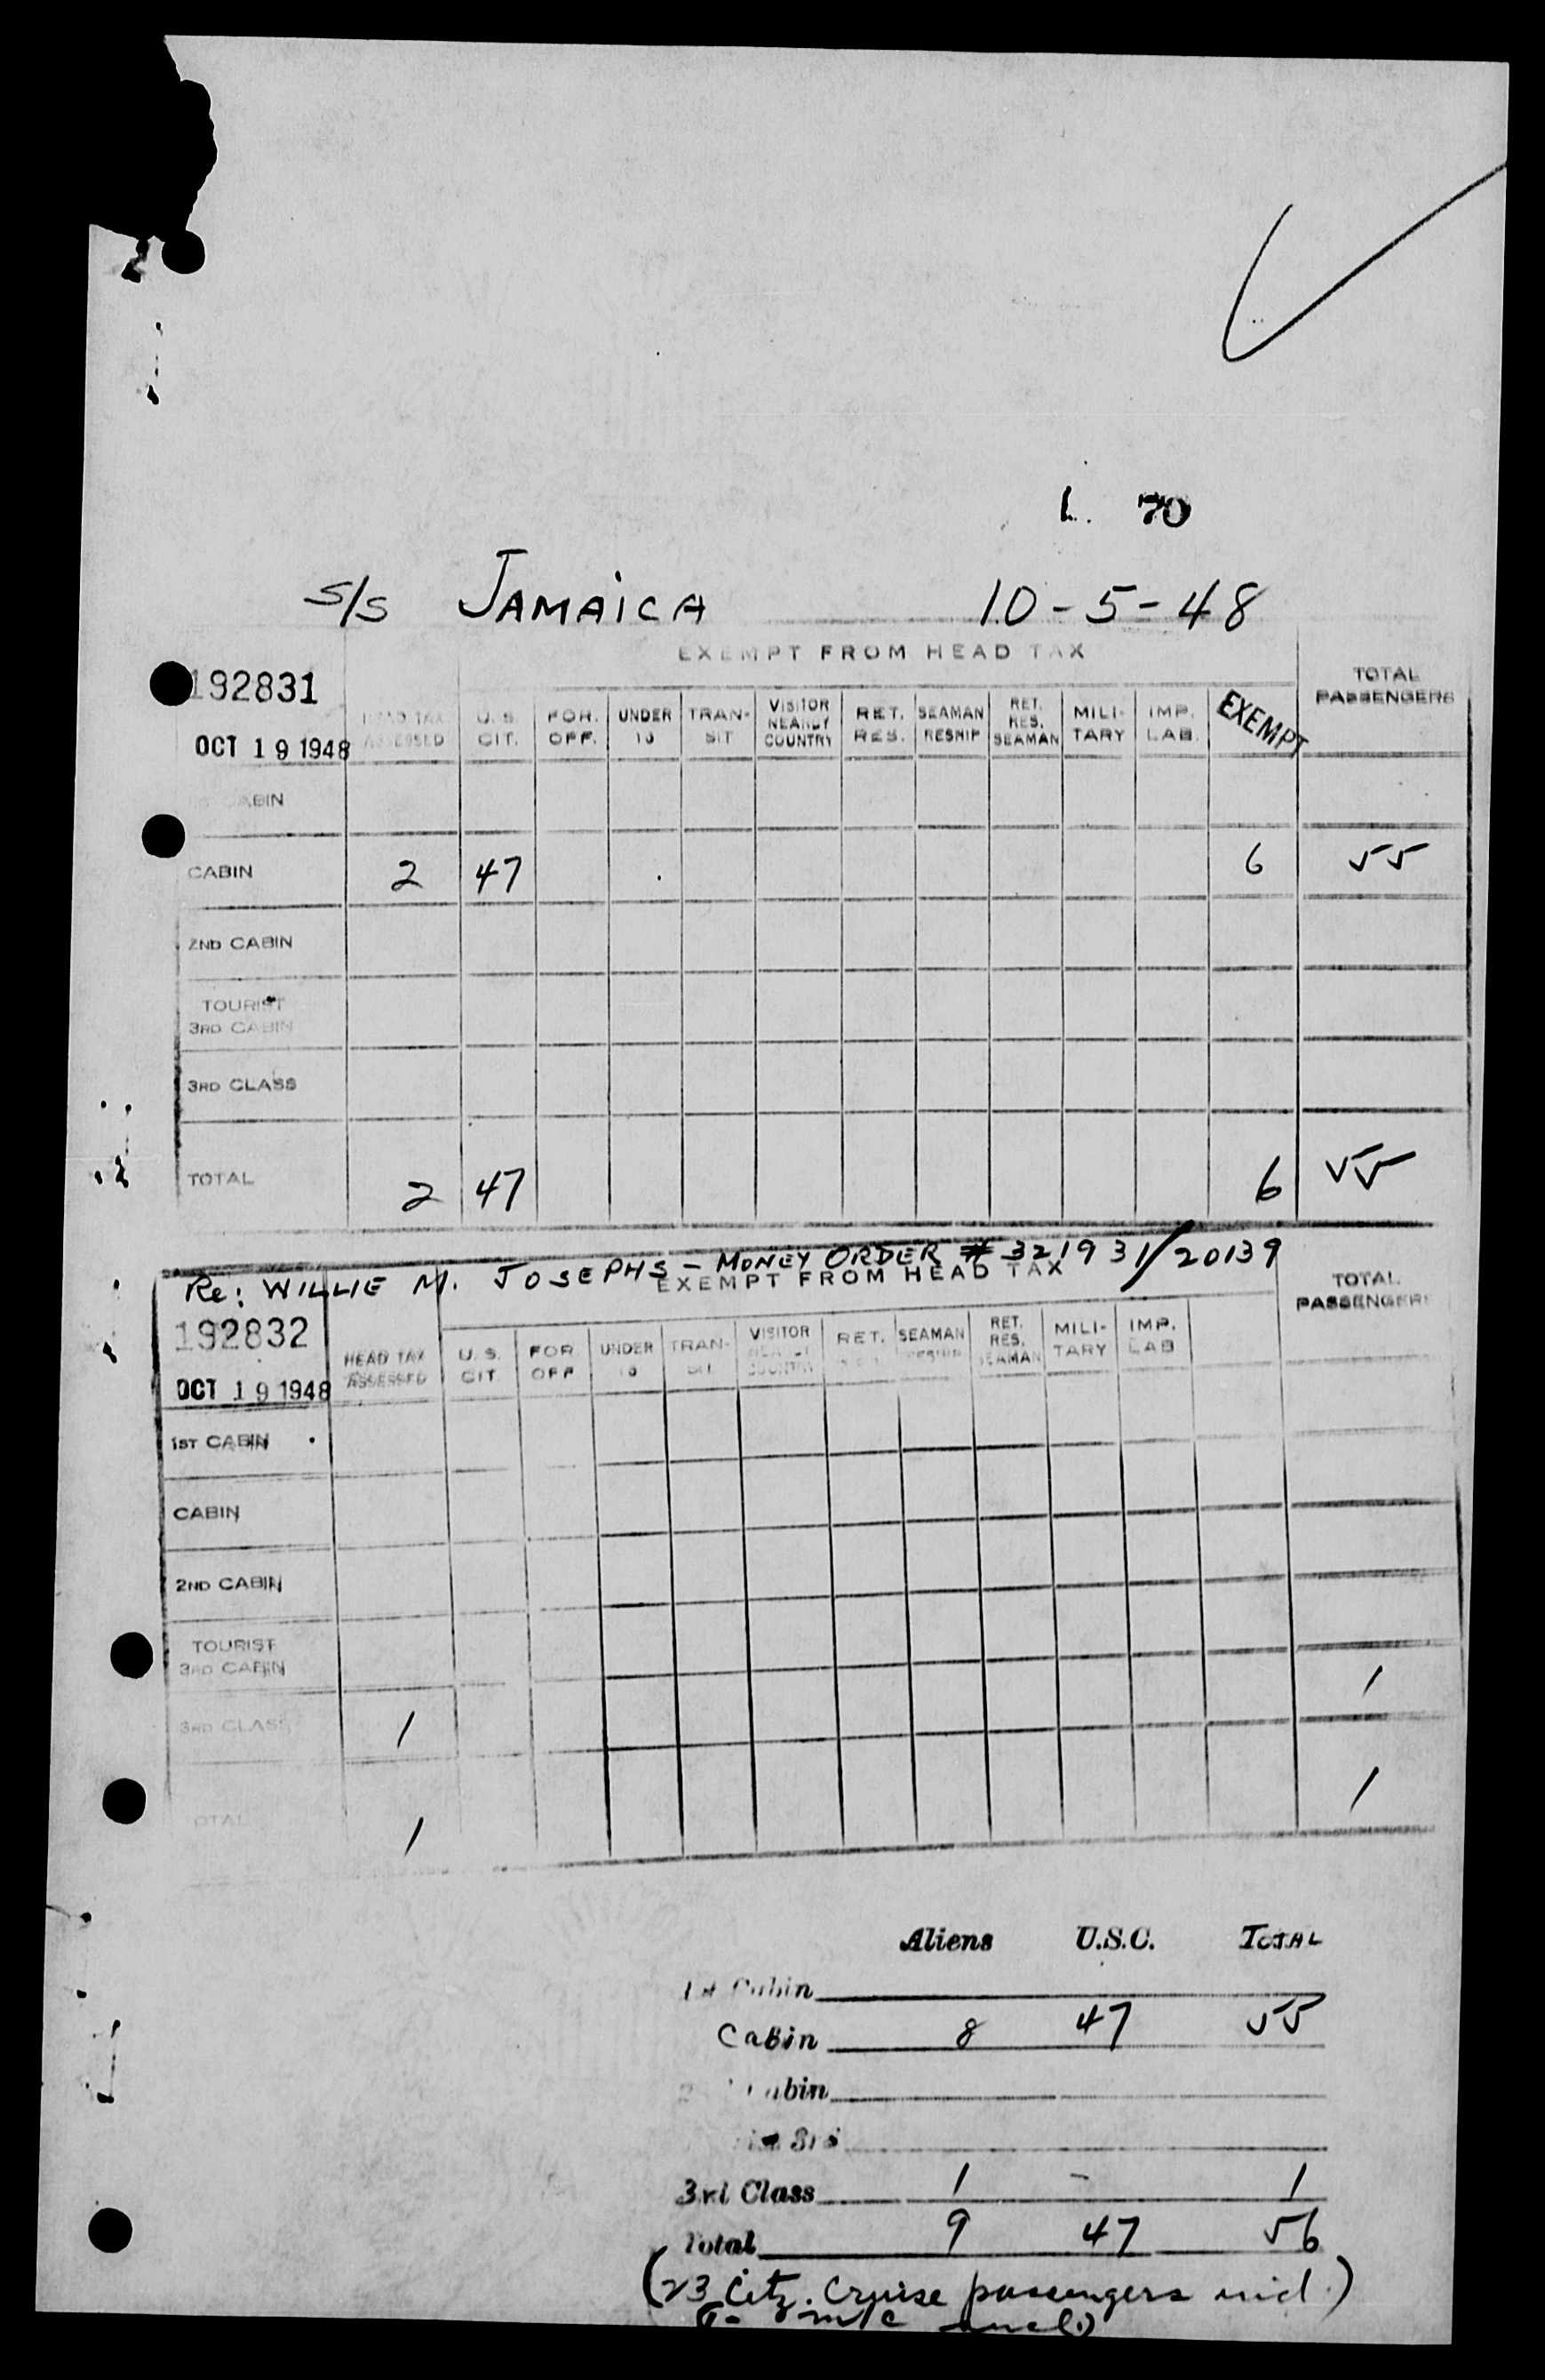 70
S/S JAMAICA 10-5-48
EXEMPT FROM HEAD TAX
192831
OCT 19 1948
HEAD TAX ASSESSED
U.S. CIT.
FOR. OFF.
UNDER 16
TRAN-SIT
VISITOR NEARBY COUNTRY
RET. RES.
SEAMAN RESHIP
RET. RES. SEAMAN
MILI-TARY
IMP. LAB.
EXEMPT
TOTAL PASSENGERS
CABIN
CABIN 2 47 6 55
2ND CABIN
TOURIST
3RD CABIN
3RD CLASS
TOTAL 2 47 6 55
Re: WILLIE M. JOSEPHS - MONEY ORDER # 321931/20139
EXEMPT FROM HEAD TAX
192832
OCT 19 1948
HEAD TAX ASSESSED
U.S. CIT
FOR OFF
UNDER 16
TRAN-SIT
VISITOR COUNTRY
RET.
SEAMAN RESHIP
RET. RES. SEAMAN
MILI-TARY
IMP. LAB
TOTAL PASSENGERS
1ST CABIN
CABIN
2ND CABIN
TOURIST
3RD CABIN 1
3RD CLASS 1
TOTAL 1 1
Aliens U.S.C. TOTAL
1st Cabin
Cabin 8 47 55
Cabin
3rd
3rd Class 1 - 1
Total 9 47 56
(23 Citz. Cruise passengers incl.)